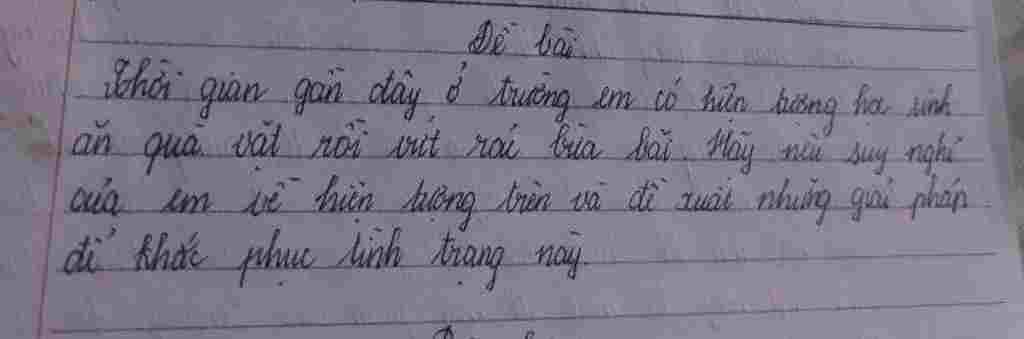 Đề bài.
Thời gian gần đây ở trường em có hiện tượng học sinh
ăn quà vặt rồi vứt rác bừa bãi. Hãy nêu suy nghĩ
của em về hiện tượng trên và đề xuất những giải pháp
để khắc phục tình trạng này.